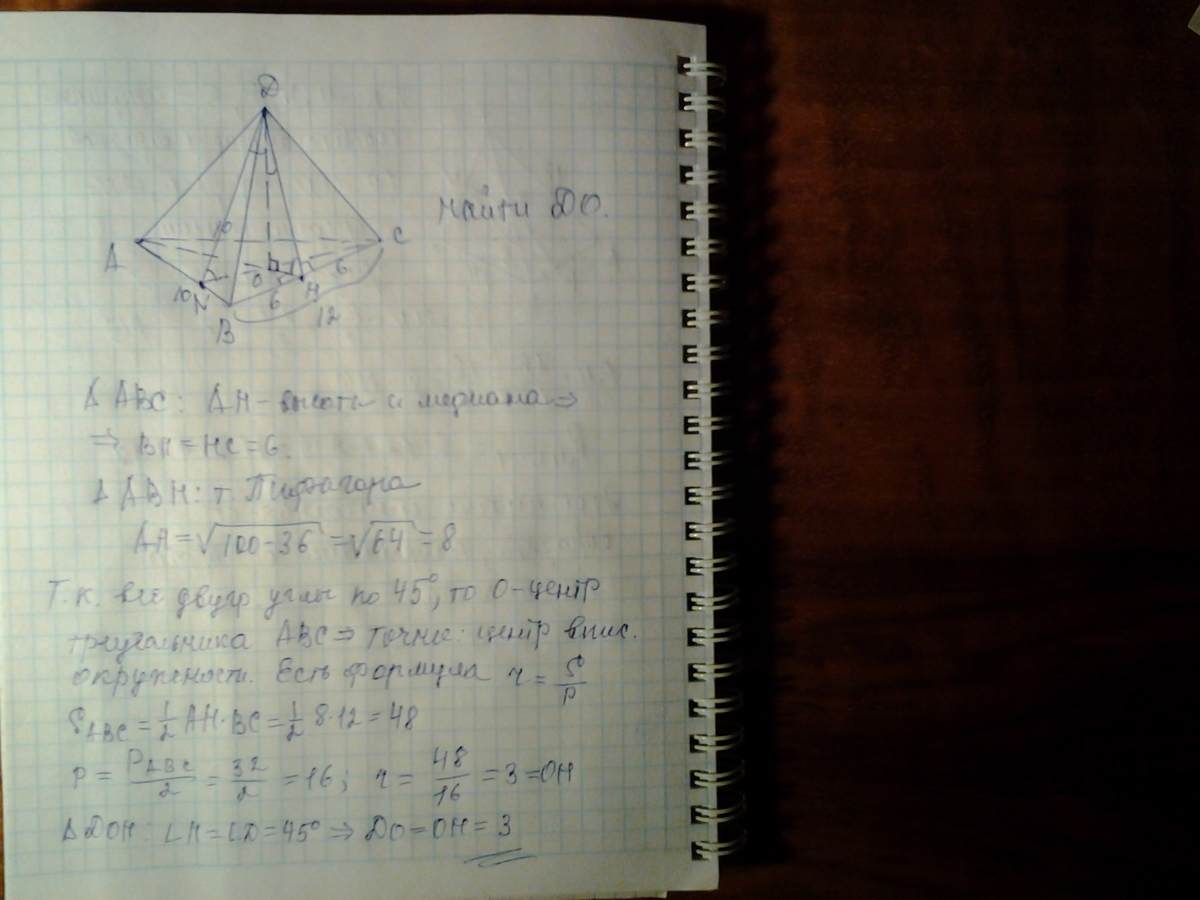 D
Найти DO.
10
A
C
O
6
H
10
N
6
12
B
Δ ABC: AH - высота и медиана ⇒
⇒ BH = HC = 6.
Δ ABH: т. Пифагора
AH = √100-36 = √64 = 8
Т.к. все двугр. углы по 45°, то O - центр
треугольника ABC ⇒ точнее: центр впис.
окружности. Есть формула r = S/p
S ABC = 1/2 AH·BC = 1/2 8·12 = 48
p = P ABC/2 = 32/2 = 16; r = 48/16 = 3 = OH
Δ DOH: ∠H = ∠D = 45° ⇒ DO = OH = 3